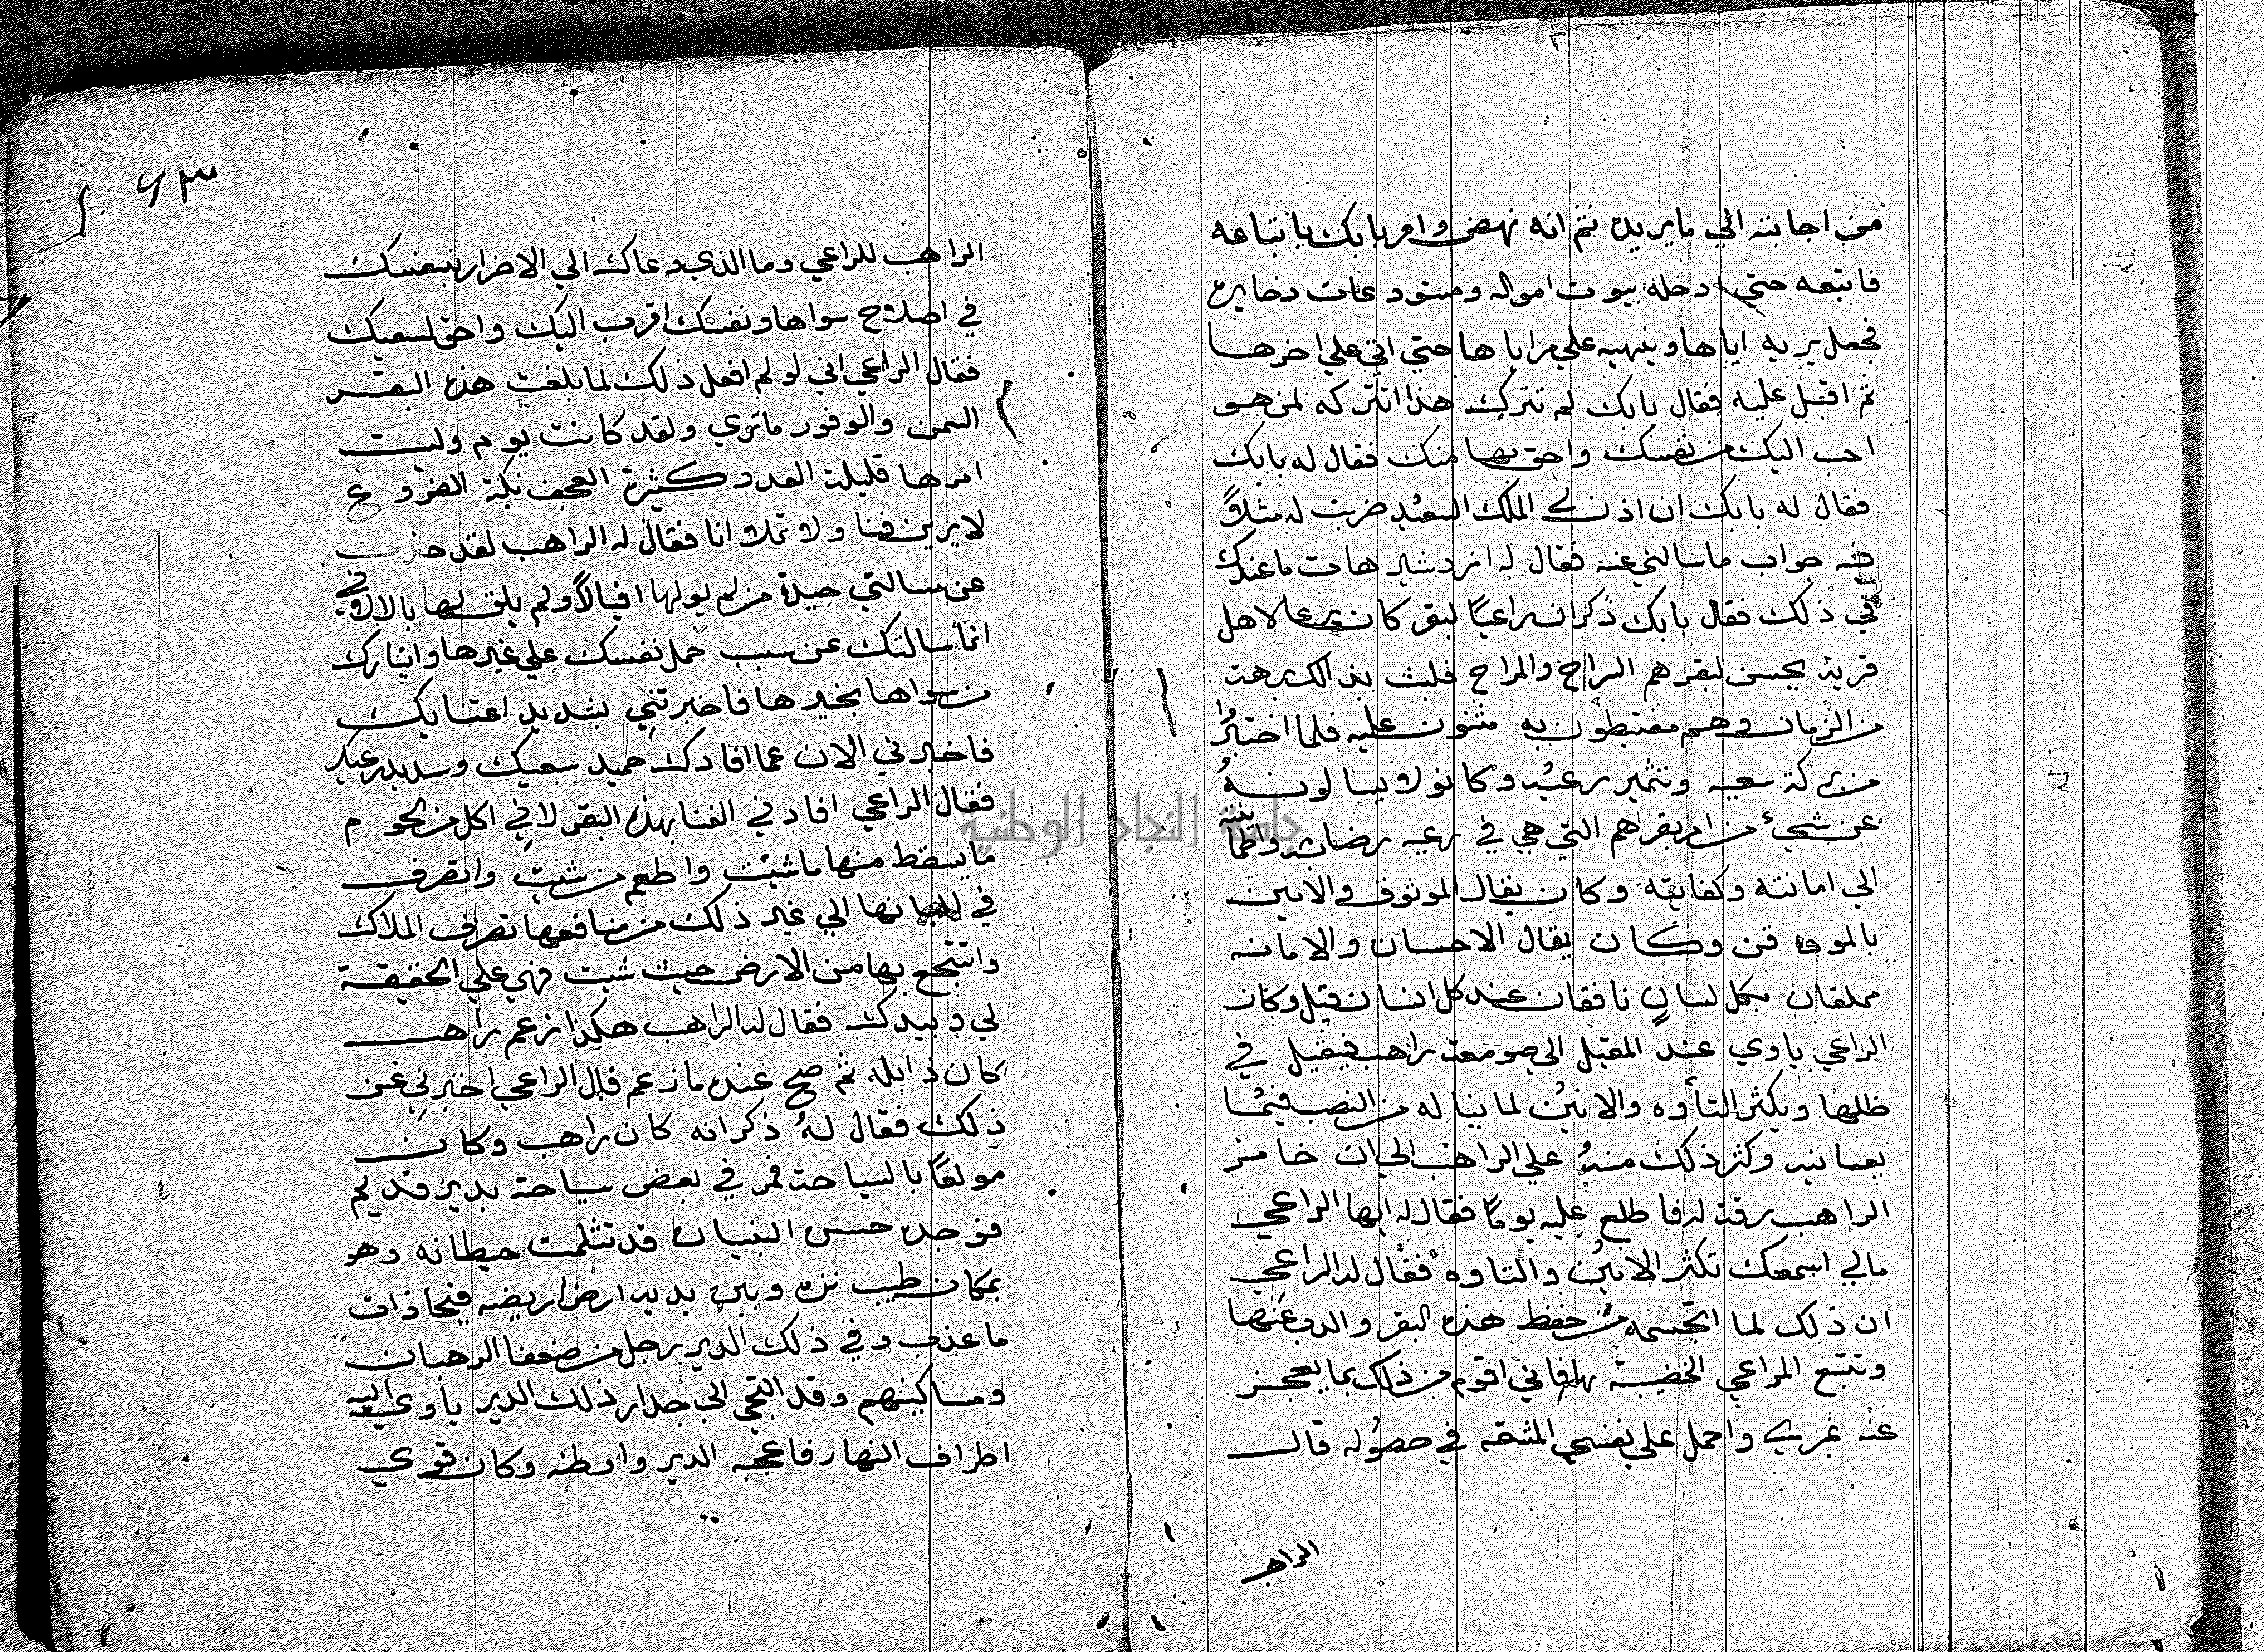 من اجابته الي ما يريده ثم انه نهض وامر بابك باتباعه
فاتبعه حتي ادخله بيوت امواله ومستودعات دخايره
فجعل يريه اياها وينبهه علي مزاياها حتي اتي علي اخرها
ثم اقبل عليه فقال بابك لم تترك هذا اتتركه لمن هو
احب اليك من نفسك واحق بها منك فقال له بابك
فقال له بابك ان اذن لي الملك السعيد ضربت له مثلاً
فيه جواب ما سالني عنه فقال له ازدشير هات ما عندك
في ذلك فقال بابك ذكر ان راعيًا لبقر كان يرعا لاهل
قرية يحسن لبقرهم السراح والمراح فلبث بذلك برهت
من الزمان وهم مغتبطون به مثنون عليه فلما اختبروا
من بركة سعيه وتثمير رعيه وكانو لا يسالونه
عن شيء من امر بقرهم التي هي في رعيه رضا به وطمأنينه
الي امانته وكفايته وكان يقال الموثوق والامين
بالمو قن وكان يقال الاحسان والامانه
مملقان بكل لسان نافقان عند كل انسان قيل وكان
الراعي ياوي عند المقيل الي صومعة راهب فيقيل في
ظلها ويكثر التأوه والانين لما يناله من النصب فيما
يعانيه وكثر ذلك منه علي الراهب الي ان خامر
الراهب رقة له فاطلع عليه يومًا فقال له ايها الراعي
مالي اسمعك تكثر الانين والتاوه فقال له الراعي
ان ذلك لما اتجسمه من حفظ هذه البقر والذب عنها
وتتبع المراعي الخصيبة بها فاني اقوم من ذلك بما يعجز
عنه غيري واحمل علي نفسي المشقه في حصوله قال
الراهب
٤٣
الراهب للراعي وما الذي دعاك الي الاضرار بنفسك
في اصلاح سواها ونفسك اقرب اليك واحق لسعيك
فقال الراعي اني لو لم افعل ذلك لما بلغت هذه البقر
السمن والوفور ما تري ولقد كانت يوم وليت
امرها قليلة العدد كثيرة العجف نكة الضروع
لا يرين فنا ولا تملا انا فقال له الراهب لقد حذت
عن مسالتي حيدة من لم يولها اقبالاً ولم يلق لها بالا
انما سالتك عن سبب حمل نفسك علي غيرها وايثارك
من سواها بخيرها فاخبرتني بشديد اعتنايك
فاخبرني الان عما افادك حميد سعيك وسديد رعيك
فقال الراعي افادني الغنا بهذه البقر لاني اكل من لحوم
ما يسقط منها ما شيت واطعم من شيت واتصرف
في البانها الي غير ذلك من منافعها تصرف الملاك
وانتجع بها من الارض حيث شيت فهي علي الحقيقة
لي وبيدك فقال له الراهب هكذا زعم راهب
كان ذا بله ثم صح عنده ما زعم قال الراعي اخبرني عن
ذلك فقال له ذكر انه كان راهب وكان
مولعًا بالسياحة فمر في بعض سياحة بدير قديم
فوجده حسن البنيان قد تثلمت حيطانه وهو
بمكان طيب نزه وبين يديه ارض اريضه فيحا ذات
ما عذب وفي ذلك الدير رجل من ضعفا الرهبان
ومساكينهم وقد التجي الي جدار ذلك الدير ياوي اليه
اطراف النهار فاعجبه الدير واوطنه وكان قوي